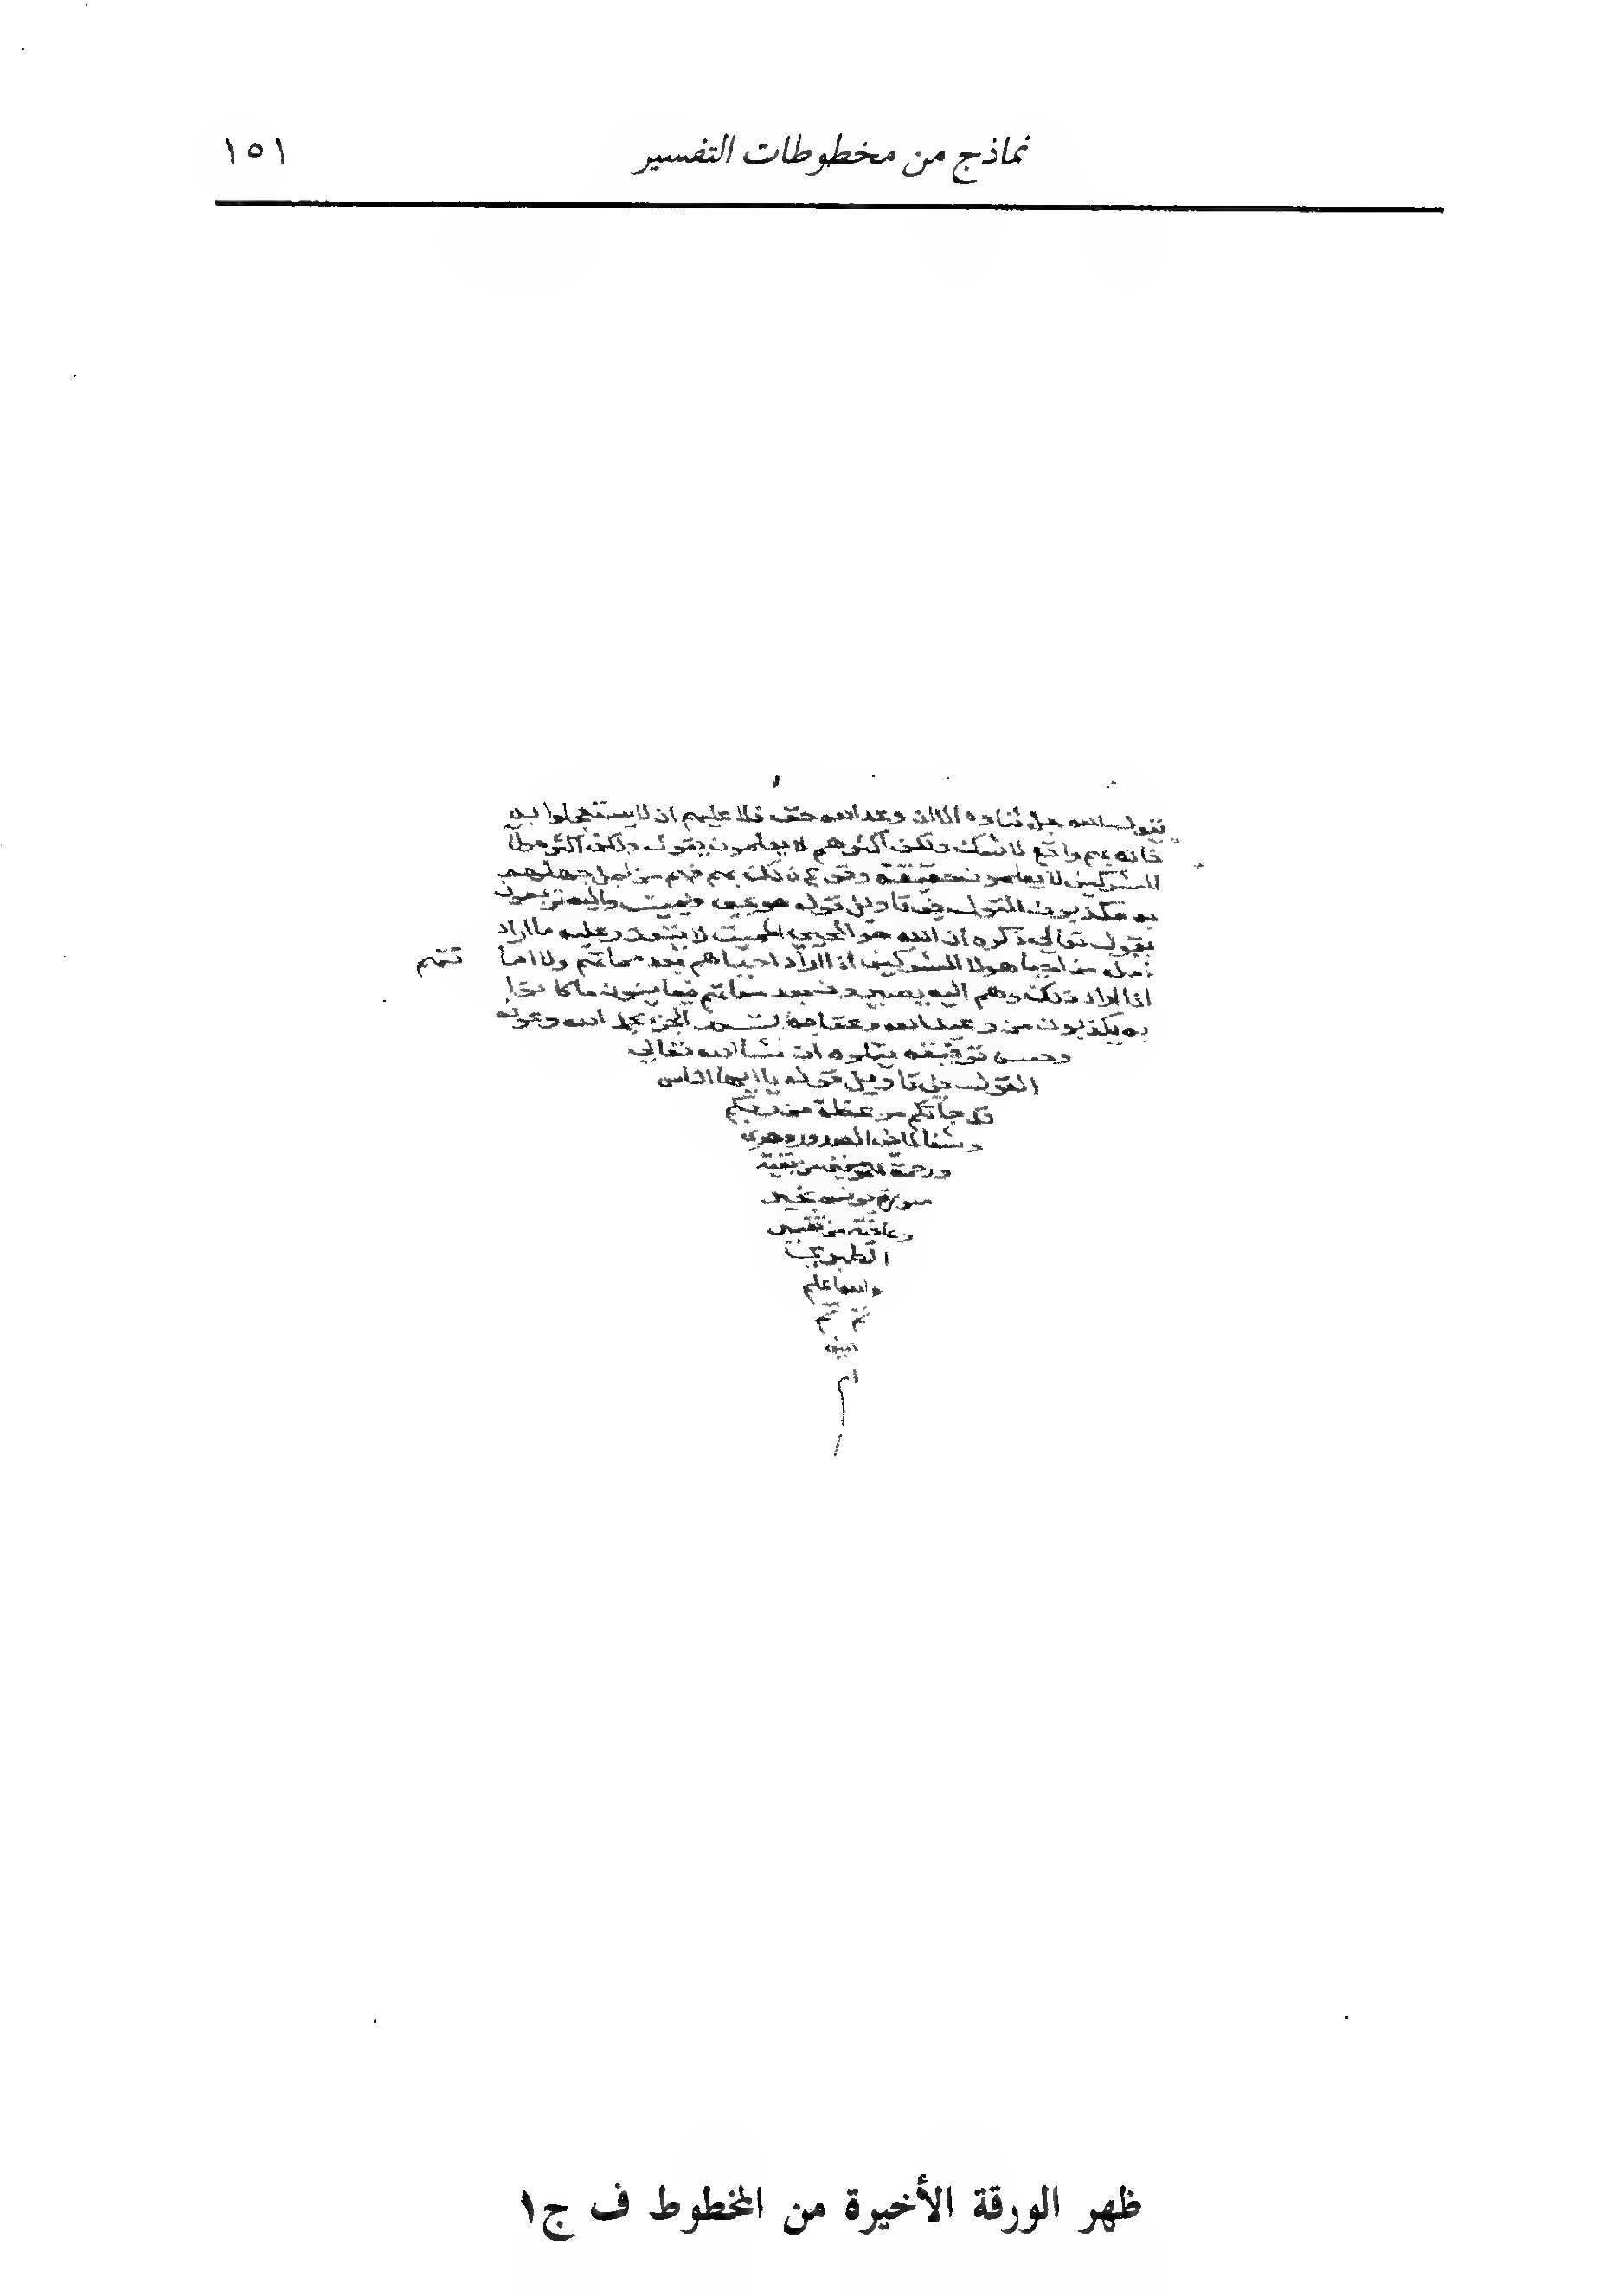 نماذج من مخطوطات التفسير
١٥١
يقول الله جل ثناؤه الا ان وعد الله حق فلا عليهم ان لا يستعجلوا به
فانه بهم واقع لا شك ولكن اكثرهم لا يعلمون يقول ولكن اكثر هولا
المشركين لا يعلمون حقيقة وقوع ذلك بهم فهم من اجل جهلهم
به مكذبون القول في تاويل قوله هو يحيى ويميت واليه ترجعون
يقول تعالى ذكره ان الله هو المحيي المميت لا يتعذر عليه ما اراد
فعله من احيا هولا المشركين اذا اراد احياهم بعد مماتهم ولا
اذا اراد ذلك وهم اليه يصيرون بعد مماتهم فيعاينون ما كانوا
به يكذبون من وعيد الله وعقابه الجزء بحمد الله وعونه
وحسن توفيقه يتلوه ان شا الله تعالى
القول في تاويل قوله يا ايها الناس
قد جاتكم موعظة من ربكم
وشفا لما في الصدور وهدى
ورحمة للمومنين من بقية
سورة يونس بخير
وعافية من تفسير
الطبري
والله اعلم
تم تم
امين
ظهر الورقة الأخيرة من المخطوط ف ج١